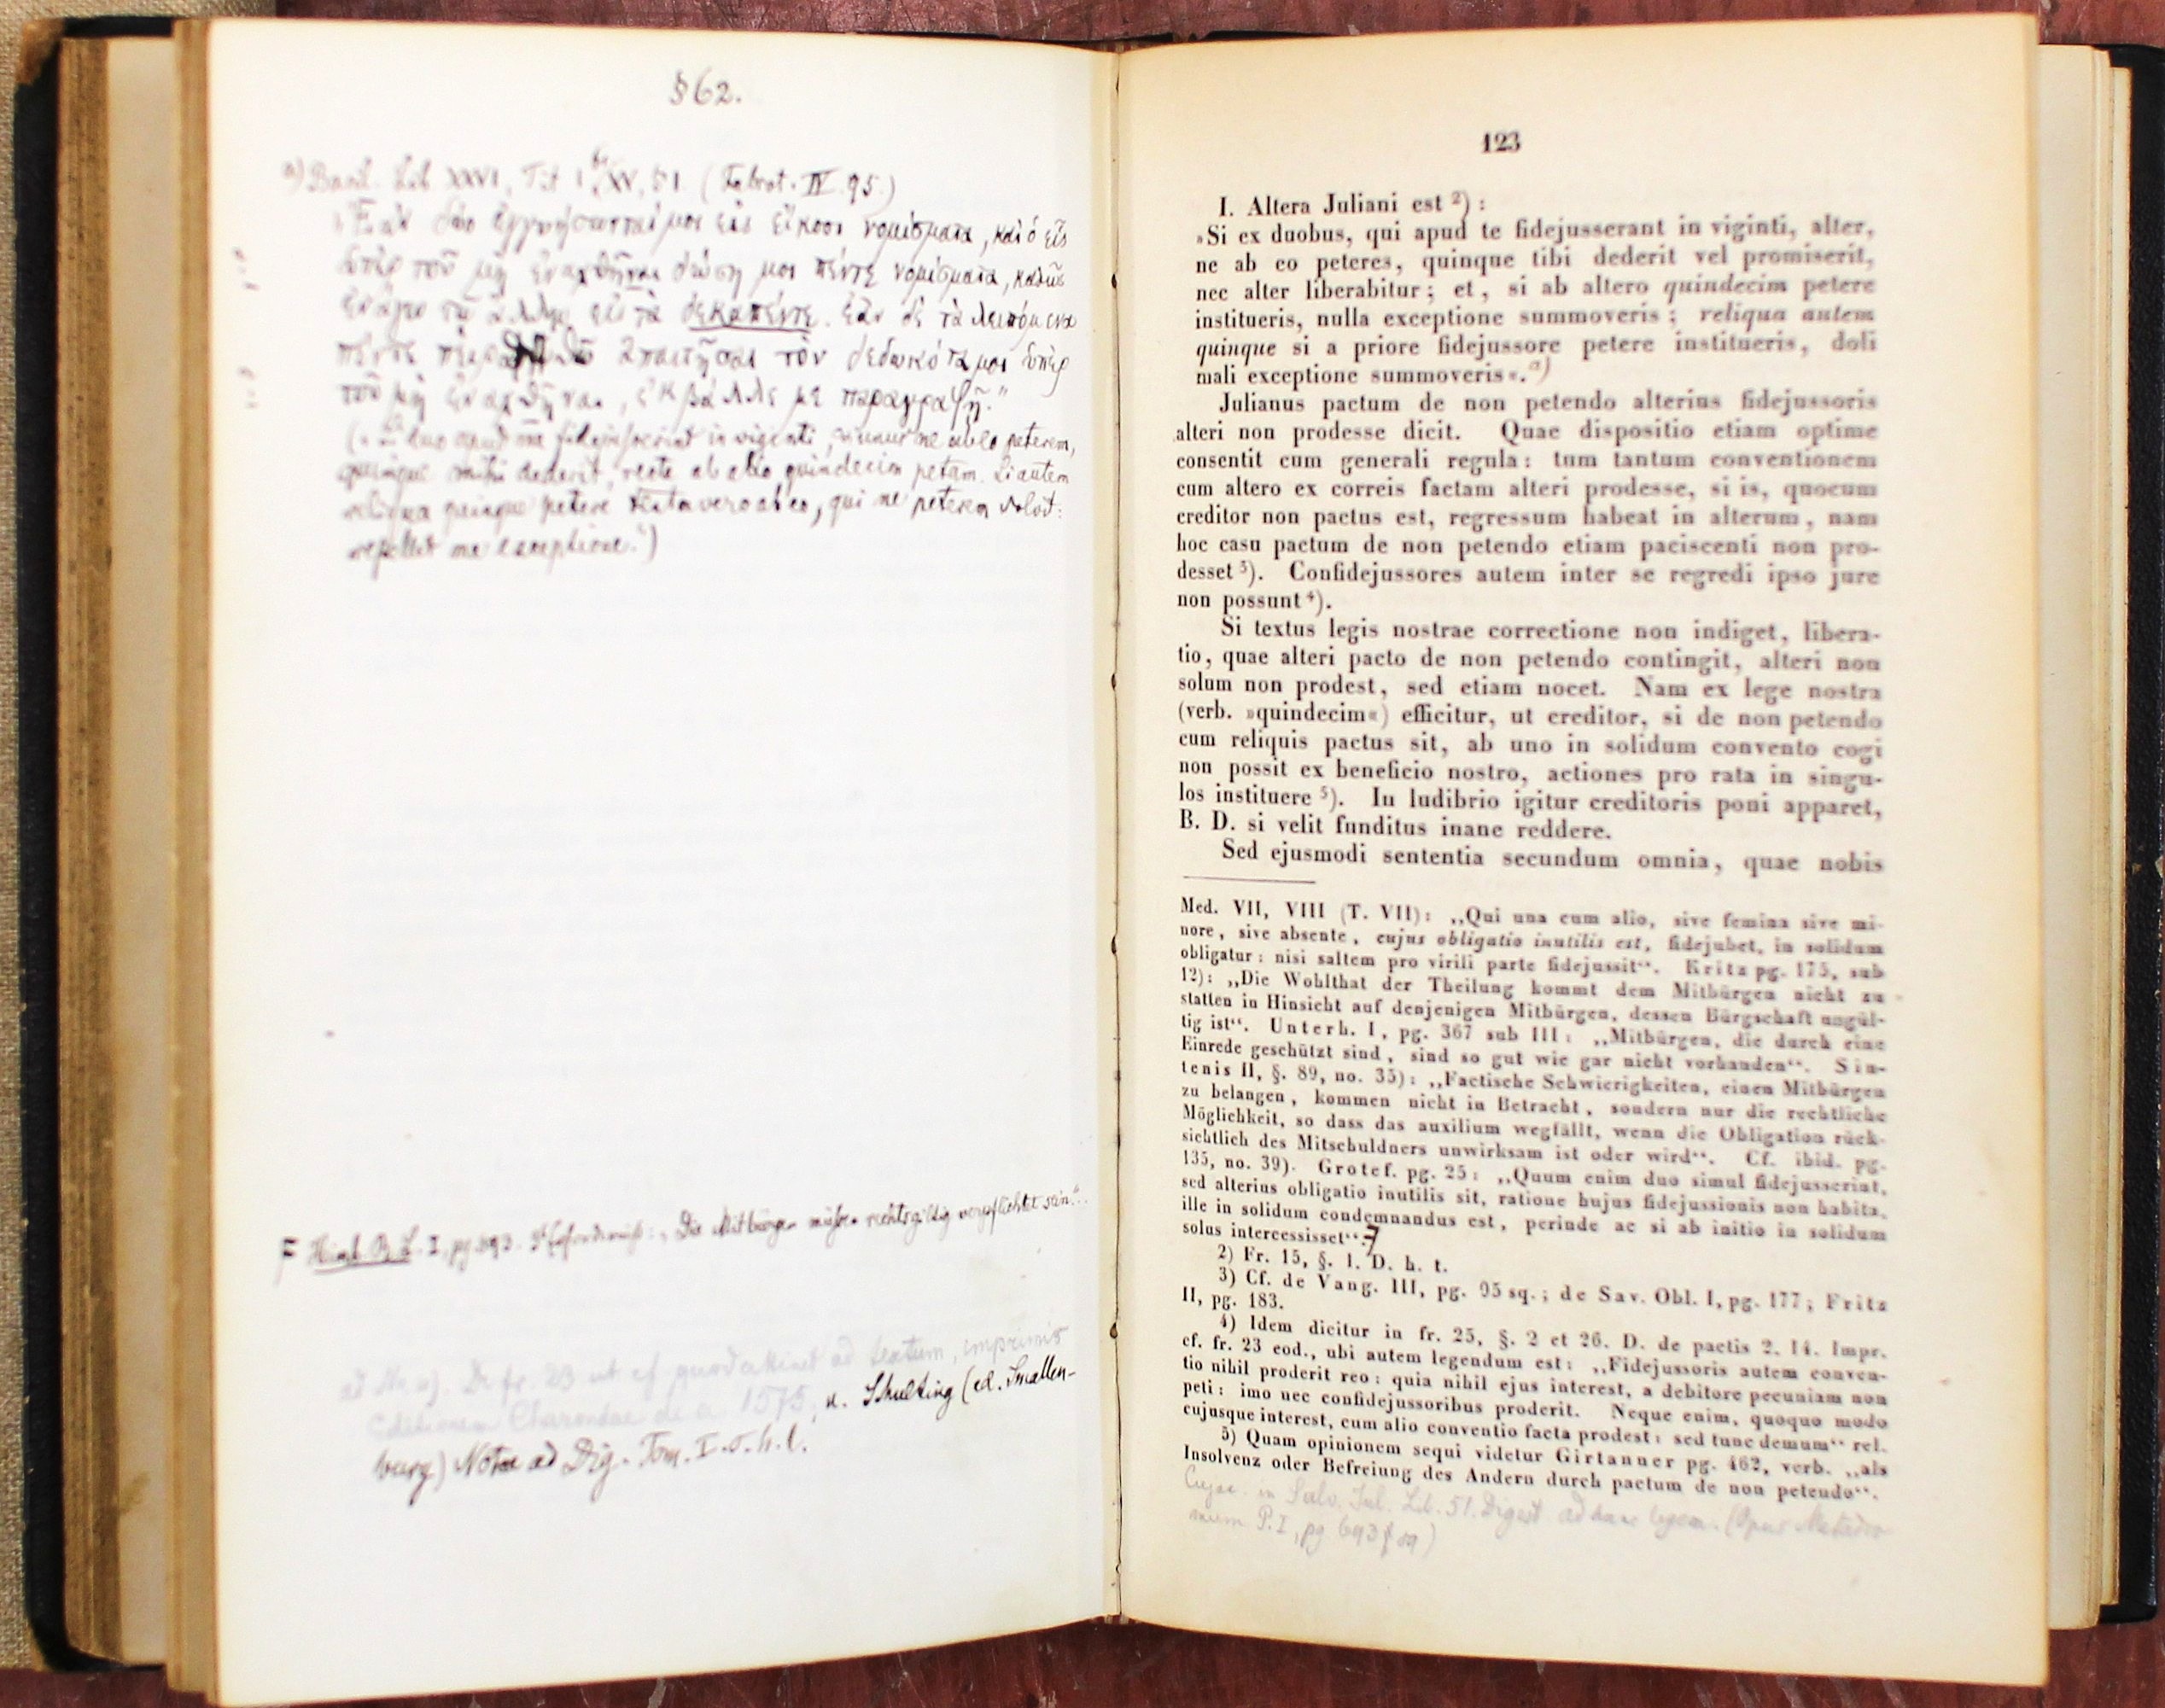 § 62.
a) Basil. Lib. XXVI, Tit. 1, 51 (Fabrot. IV. 95.)
"Ἐὰν δύο ἐγγυήσωνταί μοι εἰς εἴκοσι νομίσματα, καὶ ὁ εἷς
ὑπὲρ τοῦ μὴ ἐναχθῆναι δώσῃ μοι πέντε νομίσματα,
ἐνάγω τῷ ἄλλῳ εἰς τὰ δεκαπέντε. ἐὰν δὲ τὰ λειπόμενα
πέντε ἀπαιτῆσαι τὸν δεδωκότα μοι ὑπὲρ
τοῦ μὴ ἐναχθῆναι, ἐκβάλλει με παραγραφή."
duo apud me fidejusserint in viginti, unus ne ab eo peterem,
quinque mihi dederit, recte ab alio quindecim petam. Si autem
reliqua quinque petere tentavero ab eo, qui ne peterem solvit:
repellit me exceptione.")
F Himb. I, pg. : „Die Mitbürgen müßen rechtsgiltig verpflichtet sein."
ad fr. 23 ut ef quod attinet ad textum, imprimis
Editionem Charondae de a. 1575, u. Schulting (ed. Smallen-
burg) Notae ad Dig. Tom. I. T. h. l.
123
I. Altera Juliani est 2) :
»Si ex duobus, qui apud te fidejusserant in viginti, alter,
ne ab eo peteres, quinque tibi dederit vel promiserit,
nec alter liberabitur; et, si ab altero quindecim petere
institueris, nulla exceptione summoveris; reliqua autem
quinque si a priore fidejussore petere institueris, doli
mali exceptione summoveris«. a)
Julianus pactum de non petendo alterius fidejussoris
alteri non prodesse dicit. Quae dispositio etiam optime
consentit cum generali regula: tum tantum conventionem
cum altero ex correis factam alteri prodesse, si is, quocum
creditor non pactus est, regressum habeat in alterum, nam
hoc casu pactum de non petendo etiam paciscenti non pro-
desset 3). Confidejussores autem inter se regredi ipso jure
non possunt 4).
Si textus legis nostrae correctione non indiget, libera-
tio, quae alteri pacto de non petendo contingit, alteri non
solum non prodest, sed etiam nocet. Nam ex lege nostra
(verb. »quindecim«) efficitur, ut creditor, si de non petendo
cum reliquis pactus sit, ab uno in solidum convento cogi
non possit ex beneficio nostro, actiones pro rata in singu-
los instituere 5). In ludibrio igitur creditoris poni apparet,
B. D. si velit funditus inane reddere.
Sed ejusmodi sententia secundum omnia, quae nobis
Med. VII, VIII (T. VII): „Qui una cum alio, sive femina sive mi-
nore, sive absente, cujus obligatio inutilis est, fidejubet, in solidum
obligatur: nisi saltem pro virili parte fidejussit“. Kritz pg. 175, sub
12): „Die Wohlthat der Theilung kommt dem Mitbürgen nicht zu
statten in Hinsicht auf denjenigen Mitbürgen, dessen Bürgschaft ungül-
tig ist“. Unterh. I, pg. 367 sub III: „Mitbürgen, die durch eine
Einrede geschützt sind, sind so gut wie gar nicht vorhanden“. Sin-
tenis II, §. 89, no. 35): „Factische Schwierigkeiten, einen Mitbürgen
zu belangen, kommen nicht in Betracht, sondern nur die rechtliche
Möglichkeit, so dass das auxilium wegfällt, wenn die Obligation rück-
sichtlich des Mitschuldners unwirksam ist oder wird“. Cf. ibid. pg.
135, no. 39). Grotef. pg. 25: „Quum enim duo simul fidejusserint,
sed alterius obligatio inutilis sit, ratione hujus fidejussionis non habita,
ille in solidum condemnandus est, perinde ac si ab initio in solidum
solus intercessisset“.
2) Fr. 15, §. 1. D. h. t.
3) Cf. de Vang. III, pg. 95 sq.; de Sav. Obl. I, pg. 177; Fritz
II, pg. 183.
4) Idem dicitur in fr. 25, §. 2 et 26. D. de pactis 2. 14. Impr.
cf. fr. 23 eod., ubi autem legendum est: „Fidejussoris autem conven-
tio nihil proderit reo: quia nihil ejus interest, a debitore pecuniam non
peti: imo nec confidejussoribus proderit. Neque enim, quoquo modo
cujusque interest, cum alio conventio facta prodest: sed tunc demum“ rel.
5) Quam opinionem sequi videtur Girtanner pg. 462, verb. „als
Insolvenz oder Befreiung des Andern durch pactum de non petendo“.
Cujac. in Salv. Jul. Lib. 51. Digest. ad hanc legem. (Opus
P. I, pg. 693